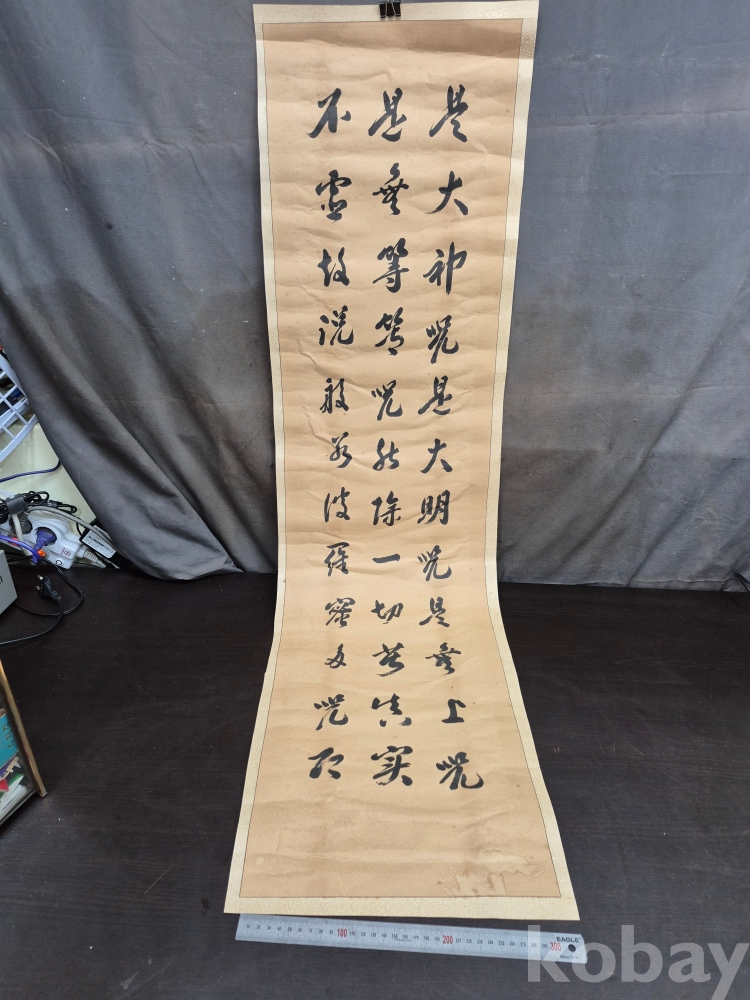 是大神咒是大明咒是無上咒
是無等等咒能除一切苦真實
不虛故說般若波羅蜜多咒即
100 200 300
EAGLE
kobay